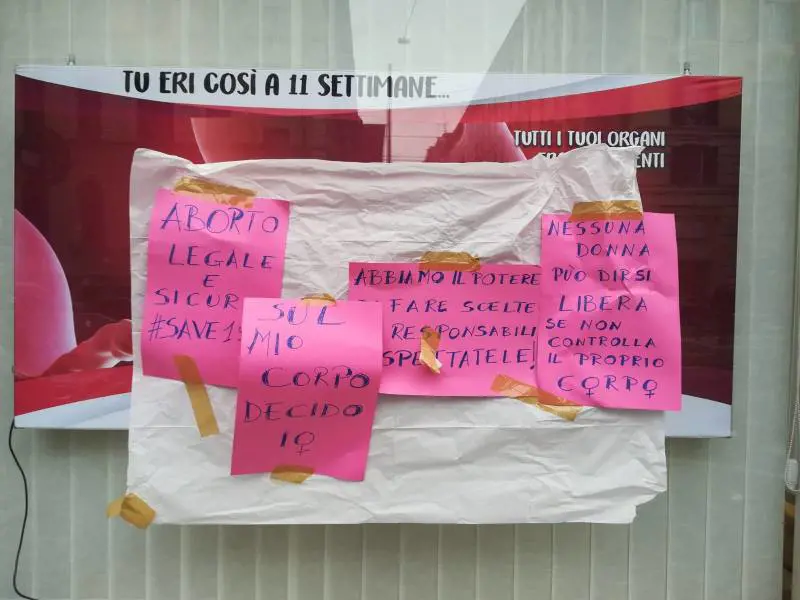 TU ERI COSÌ A 11 SETTIMANE...
TUTTI I TUOI ORGANI
ABORTO
LEGALE
E
SICUR
#SAVE1
SUL
MIO
CORPO
DECIDO
IO
ABBIAMO IL POTERE
DI FARE SCELTE
RESPONSABILI
SPETTATELE!
NESSUNA
DONNA
PUÒ DIRSI
LIBERA
SE NON
CONTROLLA
IL PROPRIO
CORPO